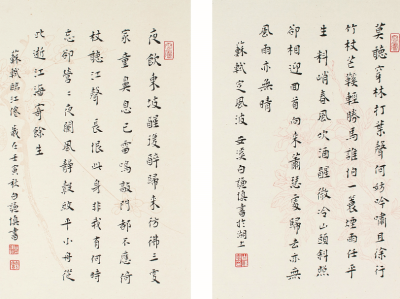 莫聽穿林打葉聲何妨吟嘯且徐行
竹杖芒鞵輕勝馬誰怕一蓑煙雨任平
生料峭春風吹酒醒微冷山頭斜照
卻相迎回首向來蕭瑟處歸去亦無
風雨亦無晴
蘇軾定風波 白謙慎書於湖上
夜飲東坡醒復醉歸來彷彿三更
家童鼻息已雷鳴敲門都不應倚
杖聽江聲長恨此身非我有何時
忘卻營〻夜闌風靜縠紋平小舟從
此逝江海寄餘生
蘇軾臨江僊 歲在壬寅秋白謙慎書